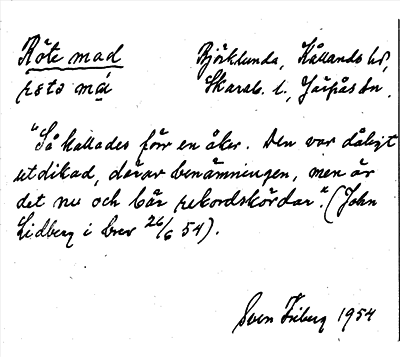 Röte mad Björklunda, Kållands hd,
röto má Skarab. l., Järpås sn.
"Så kallades förr en åker. Den var dåligt
utdikad, därav benämningen, men är
det nu och bär rekordskördar." (John
Lidberg i brev 26/6 54).
Sven Friberg 1954